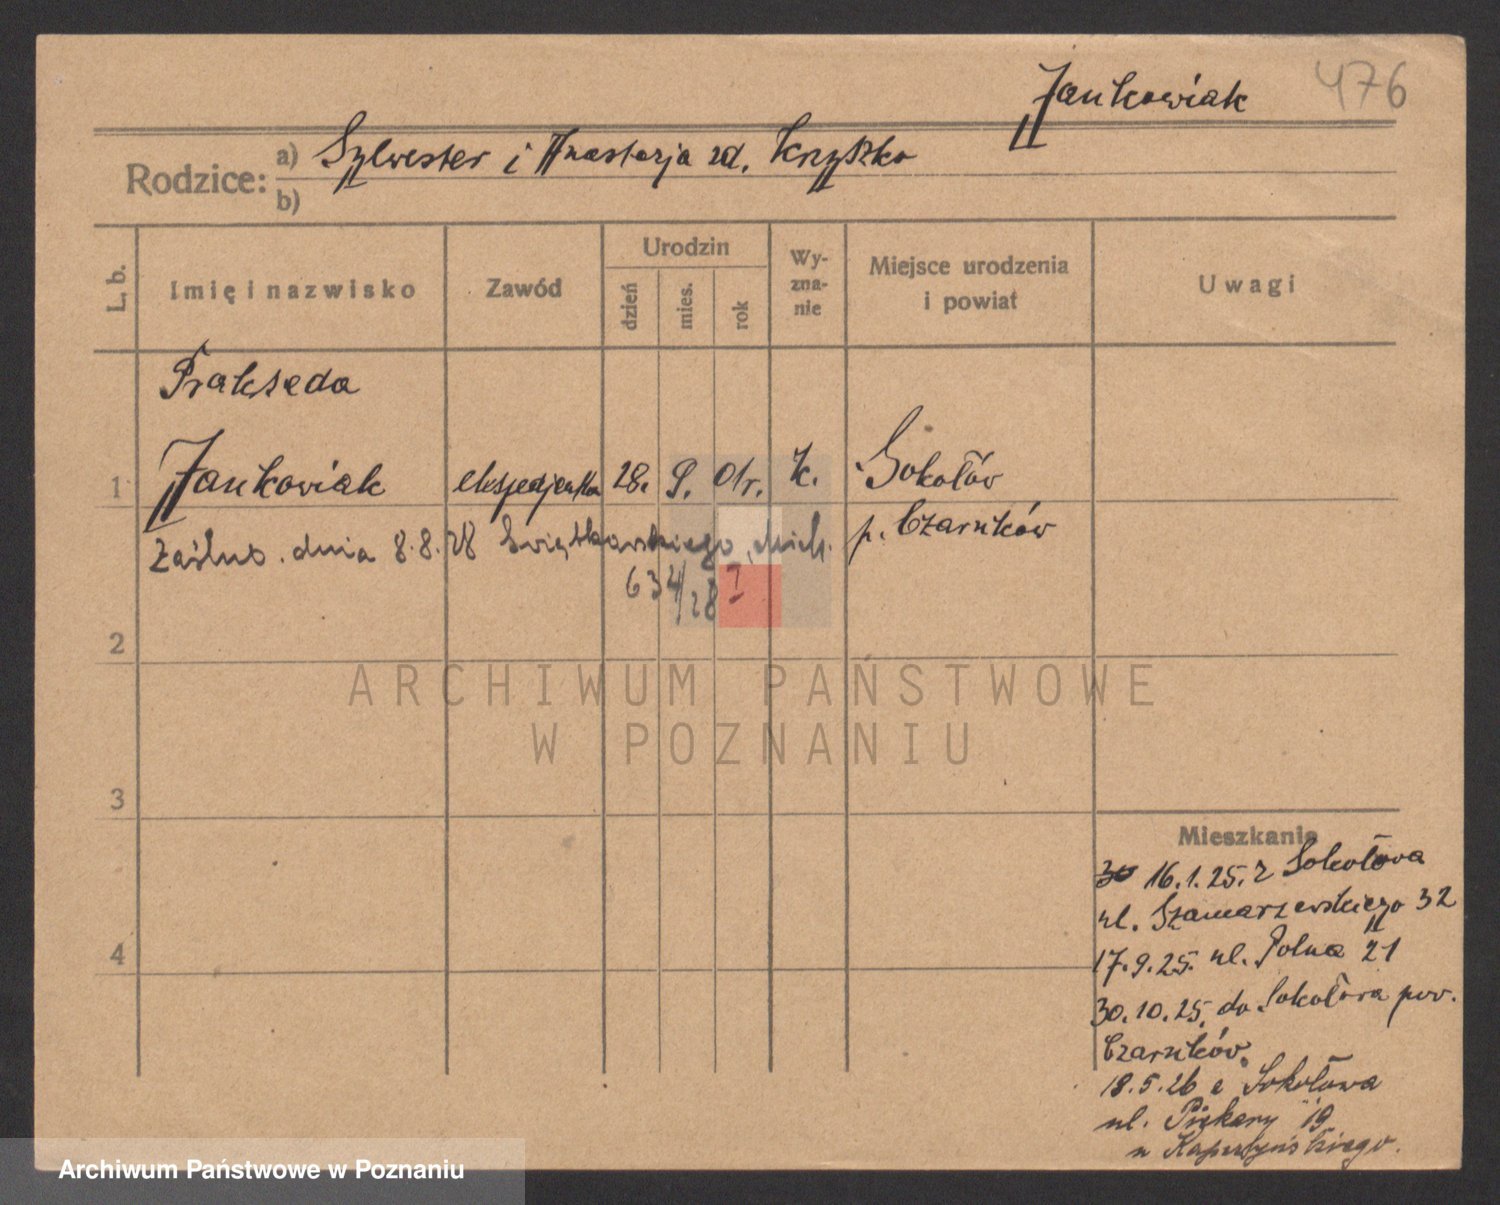 Jankowiak 476
Rodzice: a) Sylwester i Anastazja zd. Krzyżko
b)
L. b. Imię i nazwisko Zawód Urodzin dzień mies. rok Wy-zna-nie Miejsce urodzenia i powiat Uwagi
Prakseda
1 Jankowiak ekspedjentka 28. 9. 01r. K. Sokołów
p. Czarnków
Zaślub. dnia 8.8.28 Mich.
634/28 I
2
ARCHIWUM PAŃSTWOWE
W POZNANIU
3
Mieszkanie
30 16.1.25. z Sokołowa
ul. Szamarzewskiego 32
4
17.9.25. ul. Polna 21
30.10.25. do Sokołowa pow.
Czarnków.
18.5.26 z Sokołowa
ul. Piekary 19
Archiwum Państwowe w Poznaniu